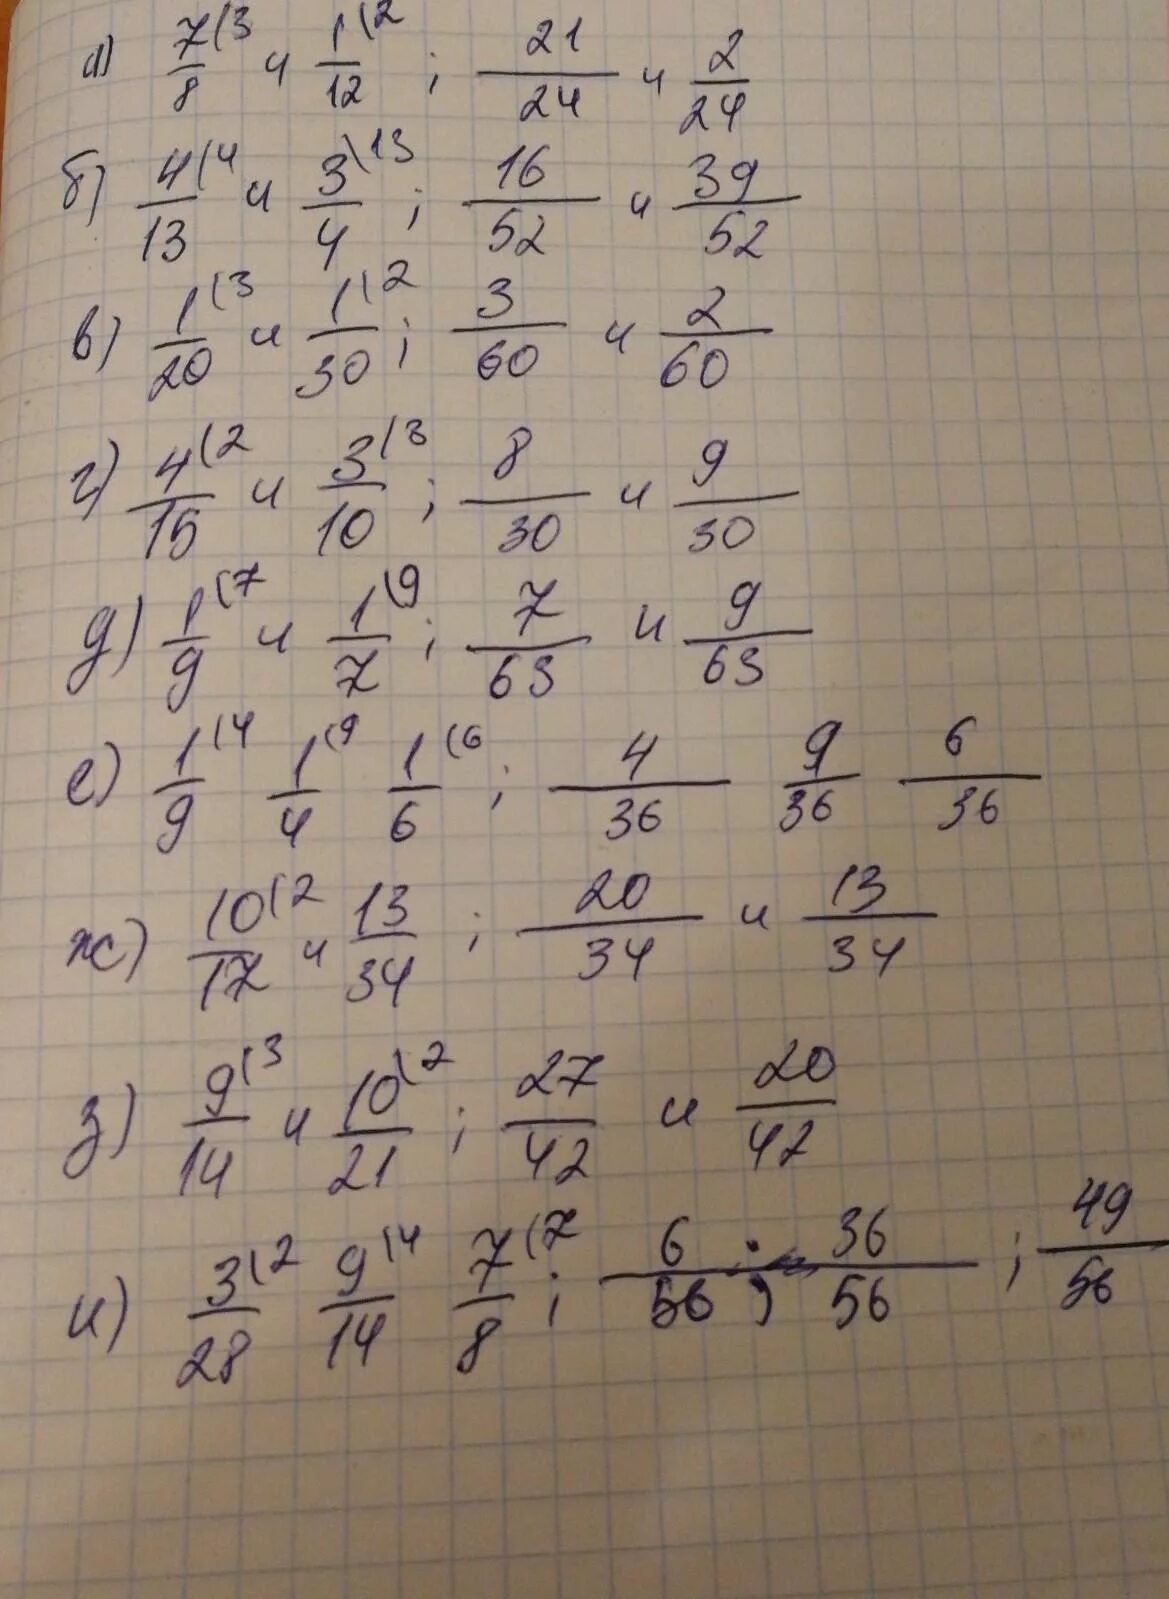 а) 7/8 (3 и 1/12 (2 ; 21/24 и 2/24
б) 4/13 (4 и 3/4 \13 ; 16/52 и 39/52
в) 1/20 (3 и 1/30 (2 ; 3/60 и 2/60
г) 4/15 (2 и 3/10 (3 ; 8/30 и 9/30
д) 1/9 (7 и 1/7 (9 ; 7/63 и 9/63
е) 1/9 (4 1/4 (9 1/6 (6 ; 4/36 9/36 6/36
ж) 10/17 (2 и 13/34 ; 20/34 и 13/34
з) 9/14 (3 и 10/21 (2 ; 27/42 и 20/42
и) 3/28 (2 9/14 (4 7/8 (7 ; 6/56 ; 36/56 ; 49/56